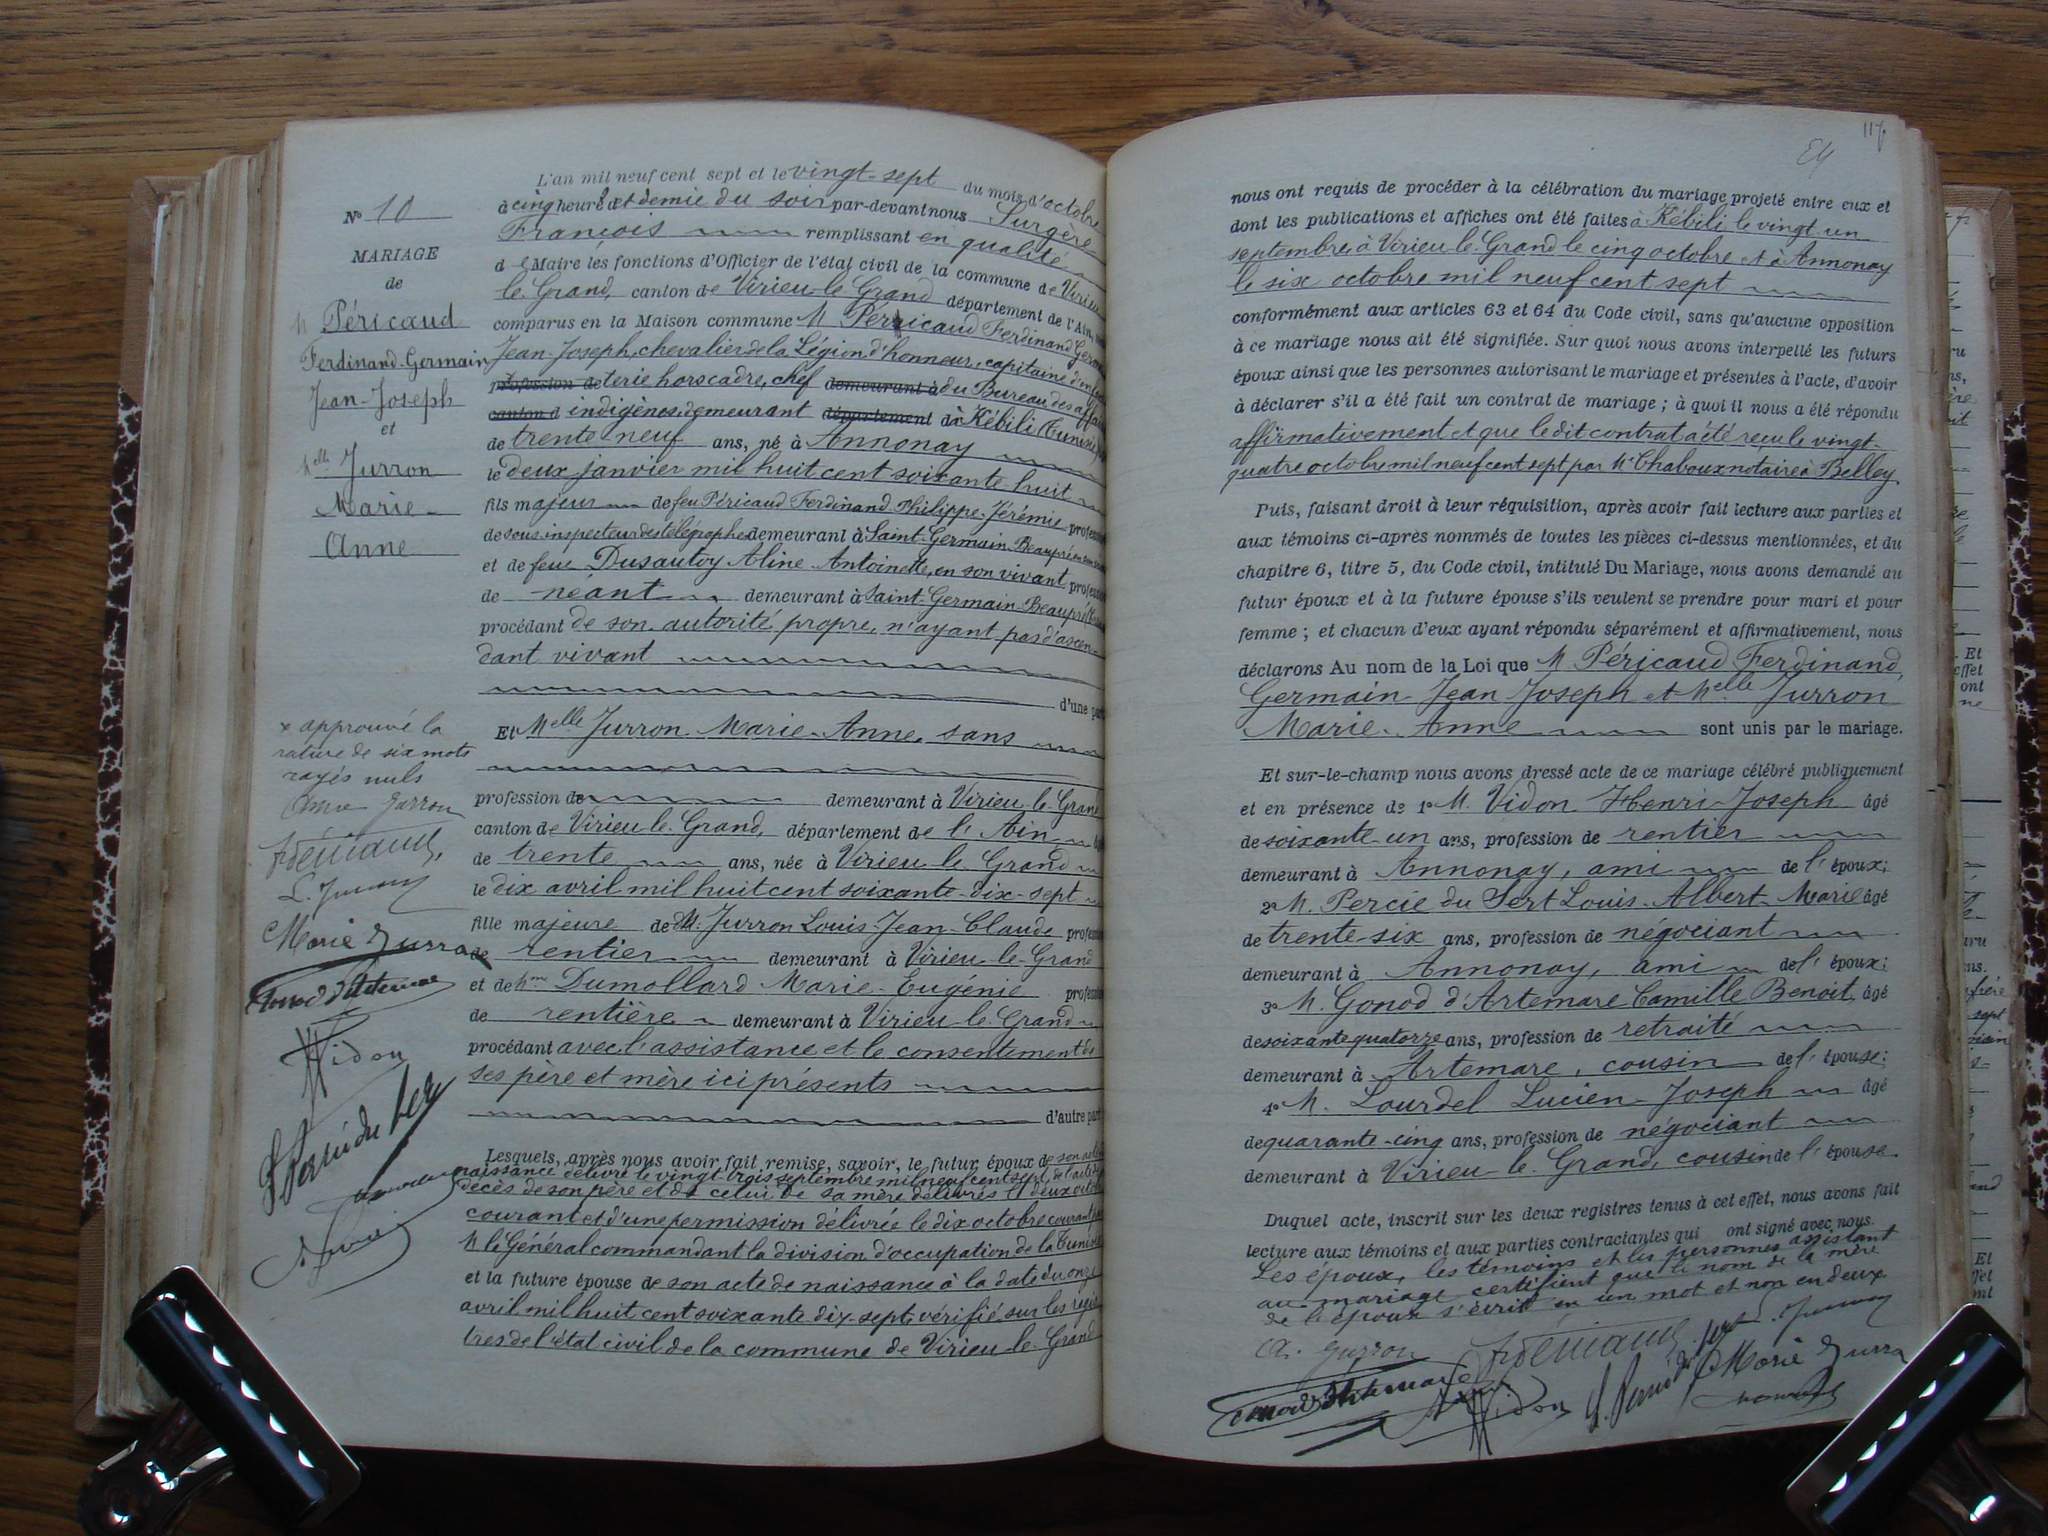 N° 10
MARIAGE
de
M Péricaud
Ferdinand-Germain
Jean-Joseph
et
Melle Jurron
Marie-
Anne
x approuvé la
rature de six mots
rayés nuls
Anne Jurron
L. Jurron
Marie Jurron
Gonod d'Artemare
HVidon
L'an mil neuf cent sept et le vingt-sept du mois d'octobre
à cinq heures et demie du soir par-devant nous Surgère
François remplissant en qualité
de Maire les fonctions d'Officier de l'état civil de la commune de Virieu
le Grand, canton de Virieu le Grand département de l'Ain,
comparus en la Maison commune M Perricaud Ferdinand Germain
Jean-Joseph, chevalier de la Légion d'honneur, capitaine d'infan
profession de terie hors cadre, chef demeurant à du Bureau des affaires
canton d indigènes, demeurant département d à Kébili (Tunisie)
de trente-neuf ans, né à Annonay
le deux janvier mil huit cent soixante huit
fils majeur de feu Péricaud Ferdinand Philippe-Jérémie profession
de sous inspecteur des télégraphes demeurant à Saint-Germain-Beaupré en son vivant
et de feue Dusautoy Aline-Antoinette, en son vivant profession
de néant demeurant à Saint-Germain-Beaupré
procédant de son autorité propre, n'ayant pas d'ascen-
dant vivant
d'une part
Et Melle Jurron Marie-Anne, sans
profession de demeurant à Virieu-le-Grand
canton de Virieu le Grand, département de l'Ain,
de trente ans, née à Virieu le Grand
le dix avril mil huit cent soixante-dix-sept
fille majeure de M. Jurron Louis-Jean-Claude profession
de rentier demeurant à Virieu-le-Grand
et de Mme Dumollard Marie-Eugénie profession
de rentière demeurant à Virieu-le-Grand
procédant avec l'assistance et le consentement de
ses père et mère ici présents
d'autre part
Lesquels, après nous avoir fait remise, savoir, le futur époux de son acte de
naissance délivré le vingt-trois septembre mil neuf cent sept, de l'acte de
décès de son père et de celui de sa mère délivrés le deux octobre
courant et d'une permission délivrée le dix octobre courant par
M le Général commandant la division d'occupation de la Tunisie
et la future épouse de son acte de naissance à la date du onze
avril mil huit cent soixante dix-sept vérifié sur les regis
tres de l'état civil de la commune de Virieu-le-Grand
117
nous ont requis de procéder à la célébration du mariage projeté entre eux et
dont les publications et affiches ont été faites à Kébili le vingt un
septembre, à Virieu-le-Grand le cinq octobre et à Annonay
le six octobre mil neuf cent sept
conformément aux articles 63 et 64 du Code civil, sans qu'aucune opposition
à ce mariage nous ait été signifiée. Sur quoi nous avons interpellé les futurs
époux ainsi que les personnes autorisant le mariage et présentes à l'acte, d'avoir
à déclarer s'il a été fait un contrat de mariage ; à quoi il nous a été répondu
affirmativement et que le dit contrat a été reçu le vingt-
quatre octobre mil neuf cent sept par Me Chaboux notaire à Belley.
Puis, faisant droit à leur réquisition, après avoir fait lecture aux parties et
aux témoins ci-après nommés de toutes les pièces ci-dessus mentionnées, et du
chapitre 6, titre 5, du Code civil, intitulé Du Mariage, nous avons demandé au
futur époux et à la future épouse s'ils veulent se prendre pour mari et pour
femme ; et chacun d'eux ayant répondu séparément et affirmativement, nous
déclarons Au nom de la Loi que M Péricaud Ferdinand,
Germain-Jean Joseph et Melle Jurron
Marie-Anne sont unis par le mariage.
Et sur-le-champ nous avons dressé acte de ce mariage célébré publiquement
et en présence de 1° M. Vidon Henri-Joseph âgé
de soixante-un ans, profession de rentier
demeurant à Annonay, ami de l'époux;
2° M. Percie du Sert Louis-Albert-Marie âgé
de trente-six ans, profession de négociant
demeurant à Annonay, ami de l'époux;
3° M. Gonod d'Artemare Camille Benoit, âgé
de soixante quatorze ans, profession de retraité
demeurant à Artemare, cousin de l'épouse;
4° M. Lourdel Lucien-Joseph âgé
de quarante-cinq ans, profession de négociant
demeurant à Virieu-le-Grand, cousin de l'épouse.
Duquel acte, inscrit sur les deux registres tenus à cet effet, nous avons fait
lecture aux témoins et aux parties contractantes qui ont signé avec nous.
Les époux, les témoins et les personnes assistant
au mariage certifient que le nom de la mère
de l'époux s'écrit en un mot et non en deux
A. Jurron
Marie Jurron
Gonod d'Artemare
HVidon